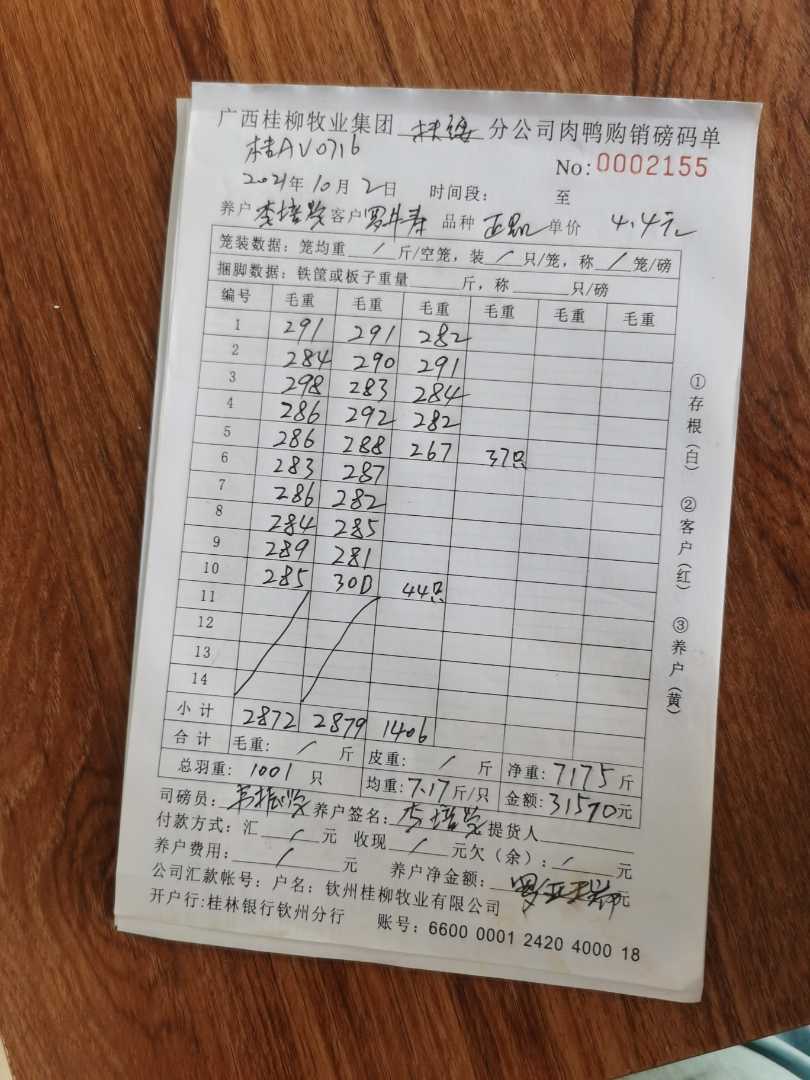 广西桂柳牧业集团 扶绥 分公司肉鸭购销磅码单
桂AV0716
No:0002155
2021年10月2日 时间段: 至
养户 李培发 客户 品种 单价 4.4元
笼装数据:笼均重 / 斤/空笼,装 / 只/笼,称 / 笼/磅
捆脚数据:铁筐或板子重量 斤,称 只/磅
编号 毛重 毛重 毛重 毛重 毛重 毛重
1 291 291 282
2 284 290 291
3 298 283 284
4 286 292 282
5 286 288 267 37只
6 283 287
7 286 282
8 284 285
9 289 281
10 285 300 44只
11
12
13
14
小计 2872 2879 1406
合计 毛重: / 斤 皮重: / 斤 净重:7175斤
总羽重:1001只 均重:7.17斤/只 金额:31570元
司磅员: 养户签名:李培发 提货人
付款方式:汇 / 元 收现 / 元欠(余): / 元
养户费用: / 元 养户净金额: 元
公司汇款帐号:户名:钦州桂柳牧业有限公司
开户行:桂林银行钦州分行 账号:6600 0001 2420 4000 18
①存根(白) ②客户(红) ③养户(黄)